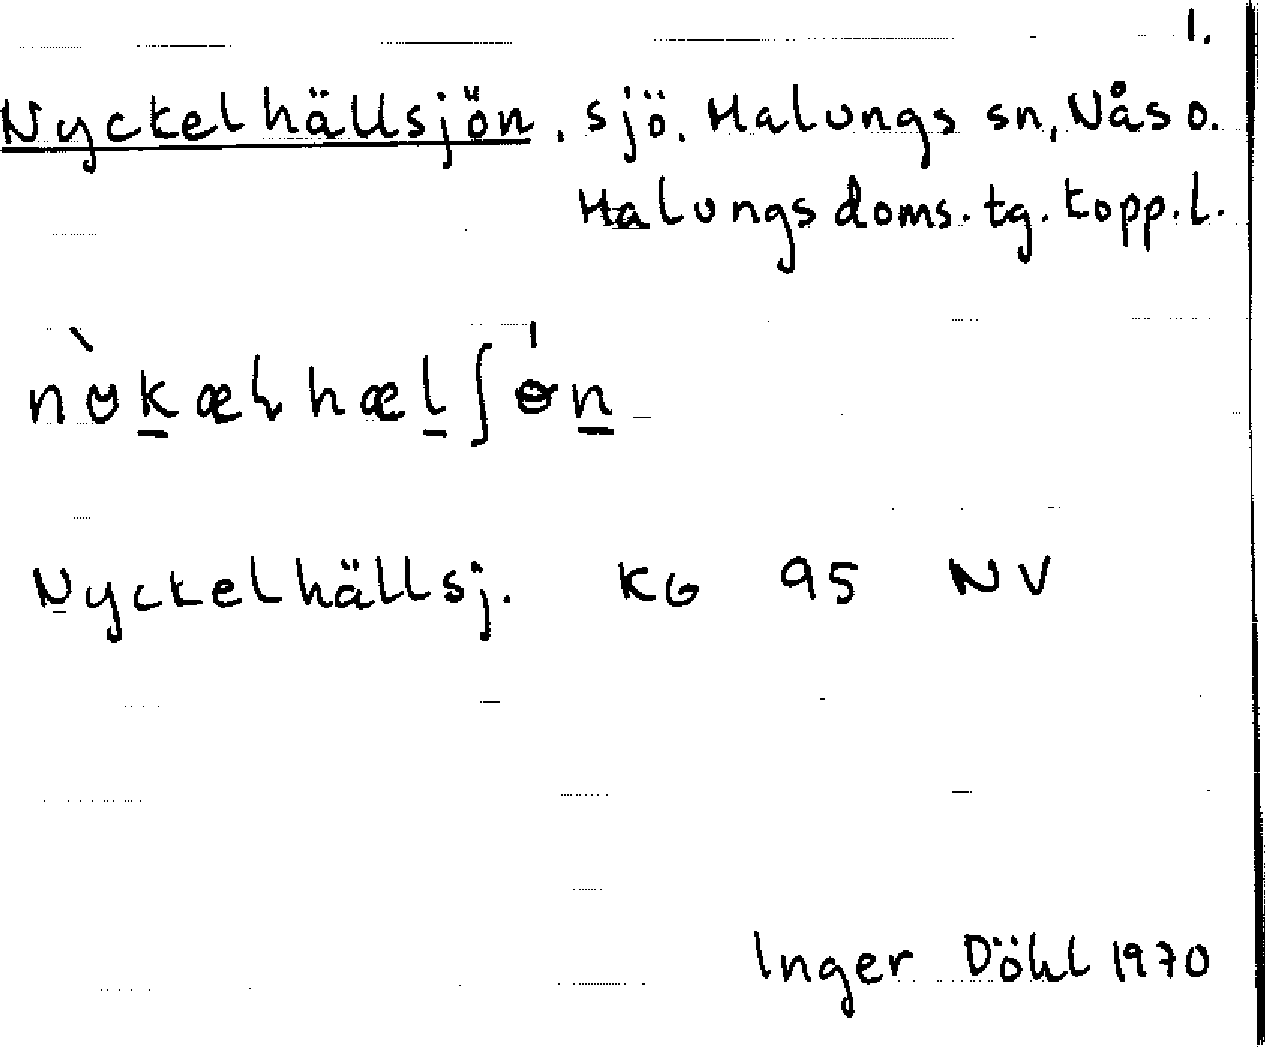 1.
Nyckelhällsjön, sjö. Malungs sn, Nås o.
Malungs doms. tg. Kopp. l.
Nyckelhällsj. KG 95 NV
Inger Döhl 1970